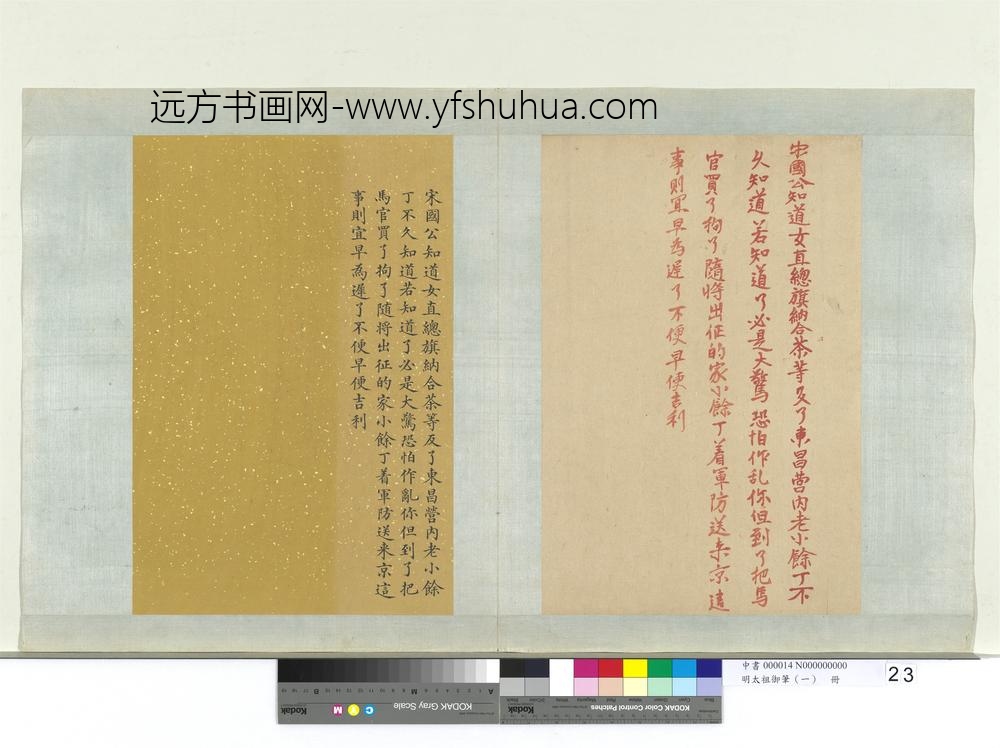 远方书画网-www.yfshuhua.com
宋國公知道女直總旗納合茶等反了東昌營內老小餘丁不
久知道若知道了必是大驚恐怕作乱你但到了把馬
官買了拘了隨將出征的家小餘丁着軍防送来京這
事則宜早為遲了不便早便吉利
宋國公知道女直總旗納合茶等反了東昌營內老小餘
丁不久知道若知道了必是大驚恐怕作亂你但到了把
馬官買了拘了随將出征的家小餘丁着軍防送来京這
事則宜早為遲了不便早便吉利
KODAK Gray Scale
C Y M
Kodak
KODAK Color Control Patches
Kodak
中書 000014 N000000000
明太祖御筆（一） 冊
23